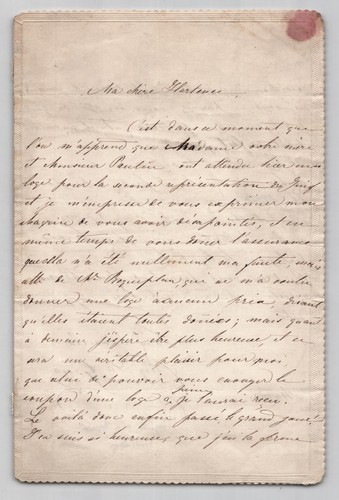 Ma chère Hortense,
C'est dans ce moment que
l'on m'apprend que Madame votre mère
et Monsieur Paulin ont attendu hier une
loge pour la seconde représentation du Juif
et je m'empresse de vous exprimer mon
chagrin de vous avoir désapointés, et en
même temps de vous donner l'assurance
que cela n'a été nullement ma faute, mais
celle de Mr Roqueplan qui ne m'a voulu
donner une loge à aucun prix, disant
qu'elles étaient toutes données; mais quant
à demain j'espère être plus heureuse, et ce
sera un véritable plaisir pour moi
que celui de pouvoir vous envoyer le
coupon d'une loge si je l'aurai reçu.
Le voilà donc enfin passé le grand jour!
J'en suis si heureuse, que j'ai la